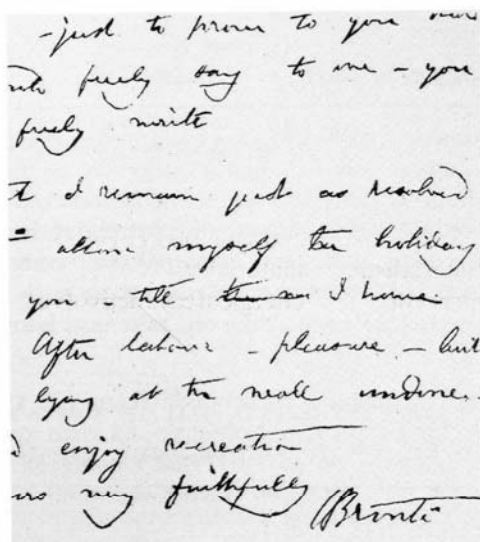 -just to prove to you
freely say to me - you
freely write
t I remain just as resolved
allow myself the holiday
you till the I have
After labour - pleasure - but
lying at the undone.
enjoy recreation
urs very faithfully
CBrontë